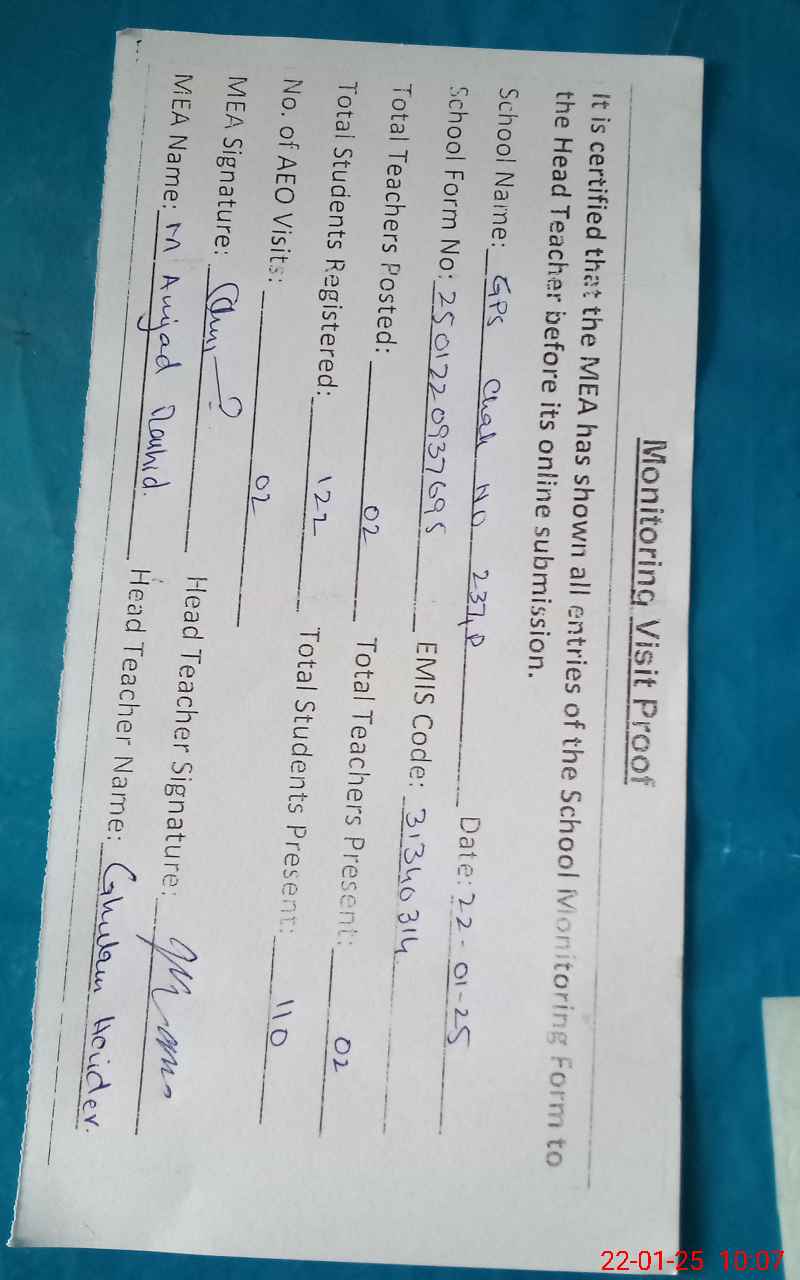 Monitoring Visit Proof
It is certified that the MEA has shown all entries of the School Monitoring Form to
the Head Teacher before its online submission.
School Name: GPS Chak No 237,P Date: 22-01-25
School Form No: 2501220937695 EMIS Code: 31340314
Total Teachers Posted: 02 Total Teachers Present: 02
Total Students Registered: 122 Total Students Present: 110
No. of AEO Visits: 02
MEA Signature: Head Teacher Signature:
MEA Name: M Amjad Rashid. Head Teacher Name: Ghulam Haider.
22-01-25 10:07